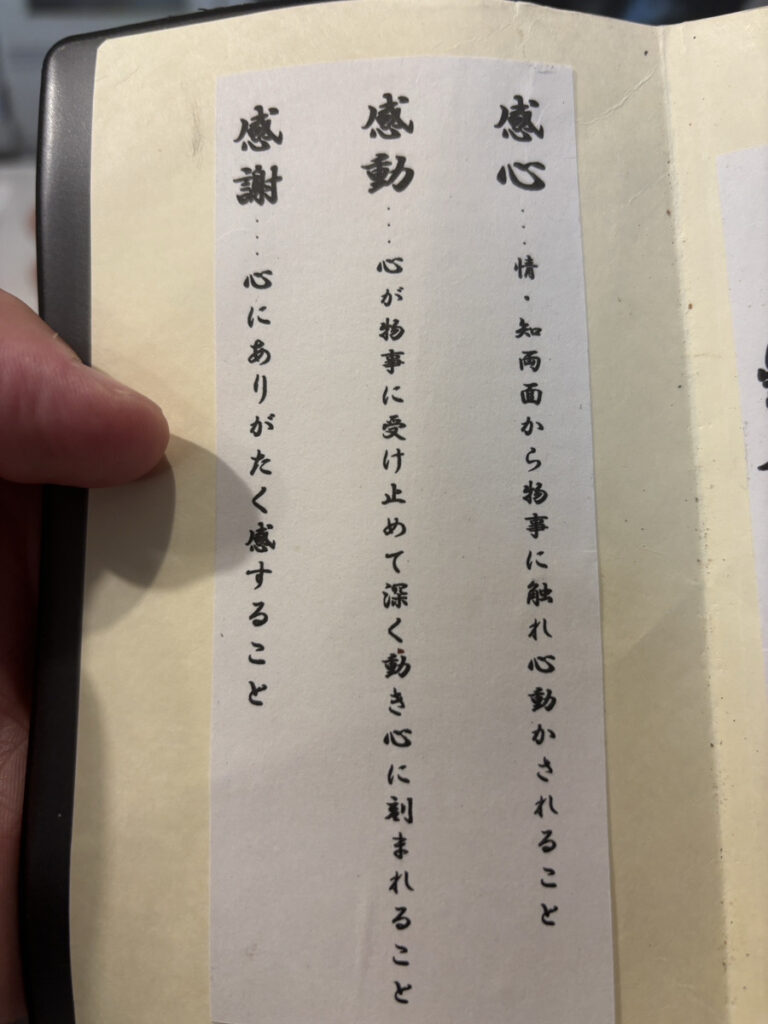 感心…情・知両面から物事に触れ心動かされること
感動…心が物事に受け止めて深く動き心に刻まれること
感謝…心にありがたく感ずること